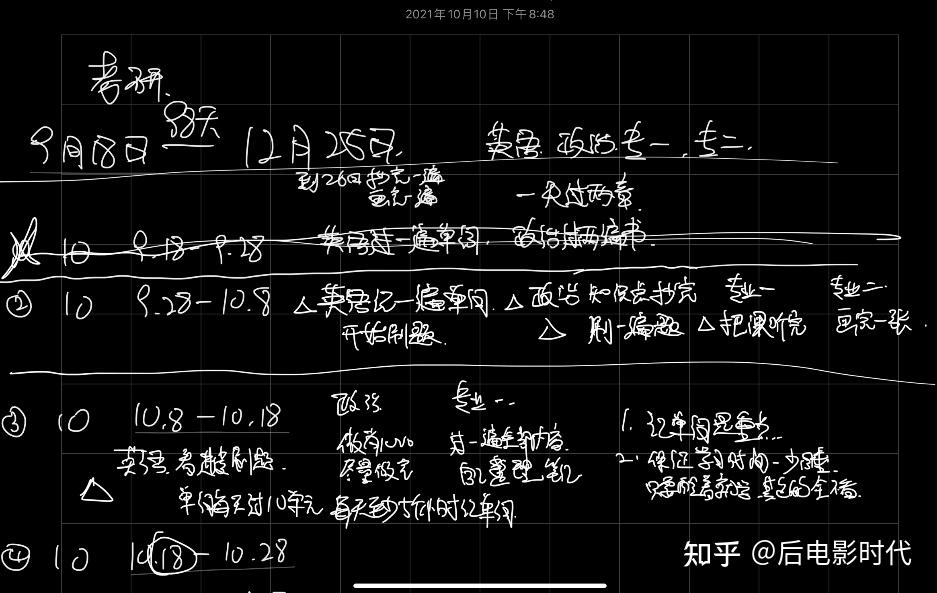 2021年10月10日 下午8:48
考研.
9月18日 98天 12月25日. 英语. 政治. 专一. 专二.
到26日抄完一遍 一天过两章.
画完一遍
10 9.18-9.28 英语过一遍单词. 政治过两遍书.
② 10 9.28-10.8 △英语记一遍单词. △政治知识点抄完 专业一 专业二
开始刷题. △ 刷一遍题 △把课听完 画完一张.
③ 10 10.8-10.18 政治 专业一.
做肖1000 过一遍全部内容. 1. 记单词是重点.
英语 着重刷题. 尽量做完 自己整理笔记 2. 保证学习时间.
△ 单词每天过10单元 每天至少 小时记单词.
④ 10 10.18-10.28
知乎 @后电影时代